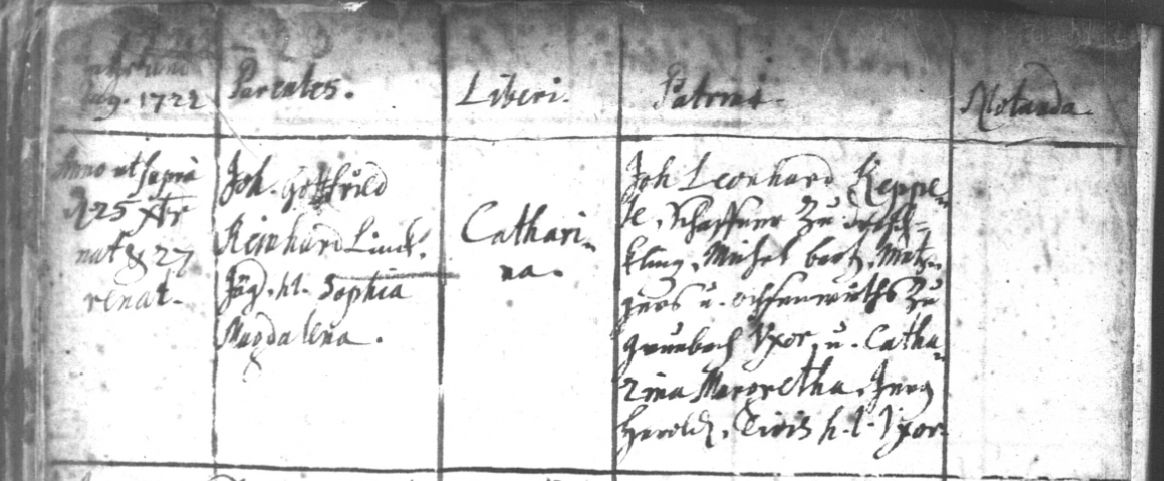 Aug. 1722
Parentes.
Liberi.
Patrini.
Notanda.
Anno ut supra
d 25 Xbr
nat. & 27
renat.
Joh. Gottfried
Reinhard Linck.
Jäg. h.l. Sophia
Magdalena.
Cathari-
na.
Joh Leonhard Keppe-
le, Schaffner zu
Michel Metz-
gers u. ochsenwirths zu
Uxor, u. Catha-
rina Margretha, Jerg
Herold, Civis h. l. Uxor.